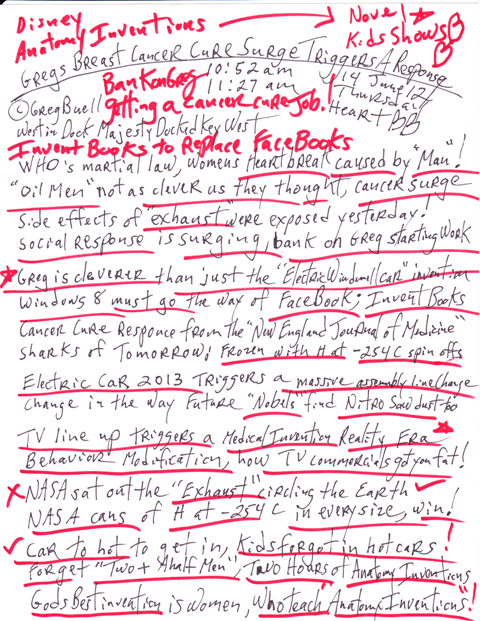 Disney
Anatomy Inventions
Novel
Kids Shows
Gregs Breast Cancer Cure Surge Triggers A Response
BanKonGreg 10:52am
11:27am
14 June 12
Thursday
Heart BB
© Greg Buell getting a cancer cure job.
Westin Dock Majesty Docked Key West
Invent Books to Replace FaceBooks
WHO's martial law, womens Heartbreak caused by "Man"!
"Oil Men" not as clever as they thought, cancer surge
Side effects of "exhaust" were exposed yesterday!
Social Response is surging, bank on Greg starting Work
Greg is cleverer than just the "ElectricWindmillCar" invention
Windows 8 must go the way of FaceBook; Invent Books
Cancer Cure Responce from the "New England Journal of Medicine"
Sharks of Tomorrow; Frozen with H at -254 C spin offs
Electric Car 2013 Triggers a massive assembly line change
Change in the way Future "Nobels" find Nitro Sawdust too
TV line up triggers a Medical Invention Reality Era
Behavior Modification, how TV commercials got you fat!
NASA sat out the "Exhaust" circling the Earth
NASA cans of H at -254 C in every size, win!
Car to hot to get in, Kids forgot in hot cars!
Forget "Two + A half Men", Two Hours of Anatomy Inventions
Gods Best invention is women, Who teach Anatomy Inventions"!